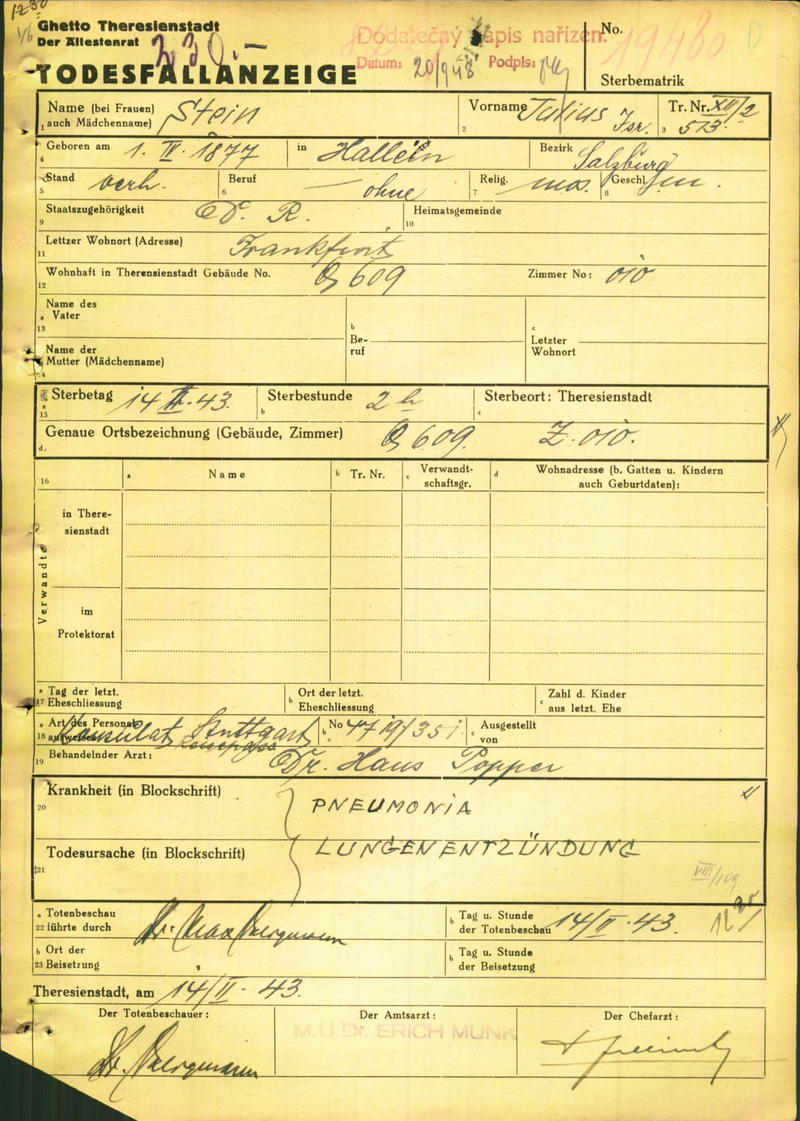 1230
1/6
Ghetto Theresienstadt
Der Ältestenrat
230.-
TODESFALLANZEIGE
Dodatečný zápis nařízen.
Datum: 20/9 48 Podpis:
No.
19480
Sterbematrik
Name (bei Frauen) auch Mädchenname) Stein
Vorname Julius Isr.
Tr. Nr. XII/2 513
Geboren am 1. III. 1877 in Hallein Bezirk Salzburg
Stand verh. Beruf — ohne Relig. mos. Geschl. m.
Staatszugehörigkeit D. R. Heimatsgemeinde
Lettzer Wohnort (Adresse) Frankfurt
Wohnhaft in Theresienstadt Gebäude No. Q 609 Zimmer No: 010
Name des Vater
Beruf
Letzter Wohnort
Name der Mutter (Mädchenname)
Sterbetag 14 II. 43. Sterbestunde 2 h Sterbeort: Theresienstadt
Genaue Ortsbezeichnung (Gebäude, Zimmer) Q 609. Z. 010.
16 Name Tr. Nr. Verwandtschaftsgr. Wohnadresse (b. Gatten u. Kindern auch Geburtdaten):
Verwandte
in Theresienstadt
im Protektorat
Tag der letzt. Eheschliessung
Ort der letzt. Eheschliessung
Zahl d. Kinder aus letzt. Ehe
Art des Personalausweises Konsulat Stuttgart No Ausgestellt von
Behandelnder Arzt: Dr. Hans Popper
Krankheit (in Blockschrift) PNEUMONIA
Todesursache (in Blockschrift) LUNGENENTZÜNDUNG
VIII/109
Totenbeschau führte durch Dr. Tag u. Stunde der Totenbeschau 14/II. 43.
Ort der Beisetzung
Tag u. Stunde der Beisetzung
Theresienstadt, am 14/II. 43.
Der Totenbeschauer: Der Amtsarzt: Der Chefarzt:
M.U.Dr. ERICH MUNK
Dr.